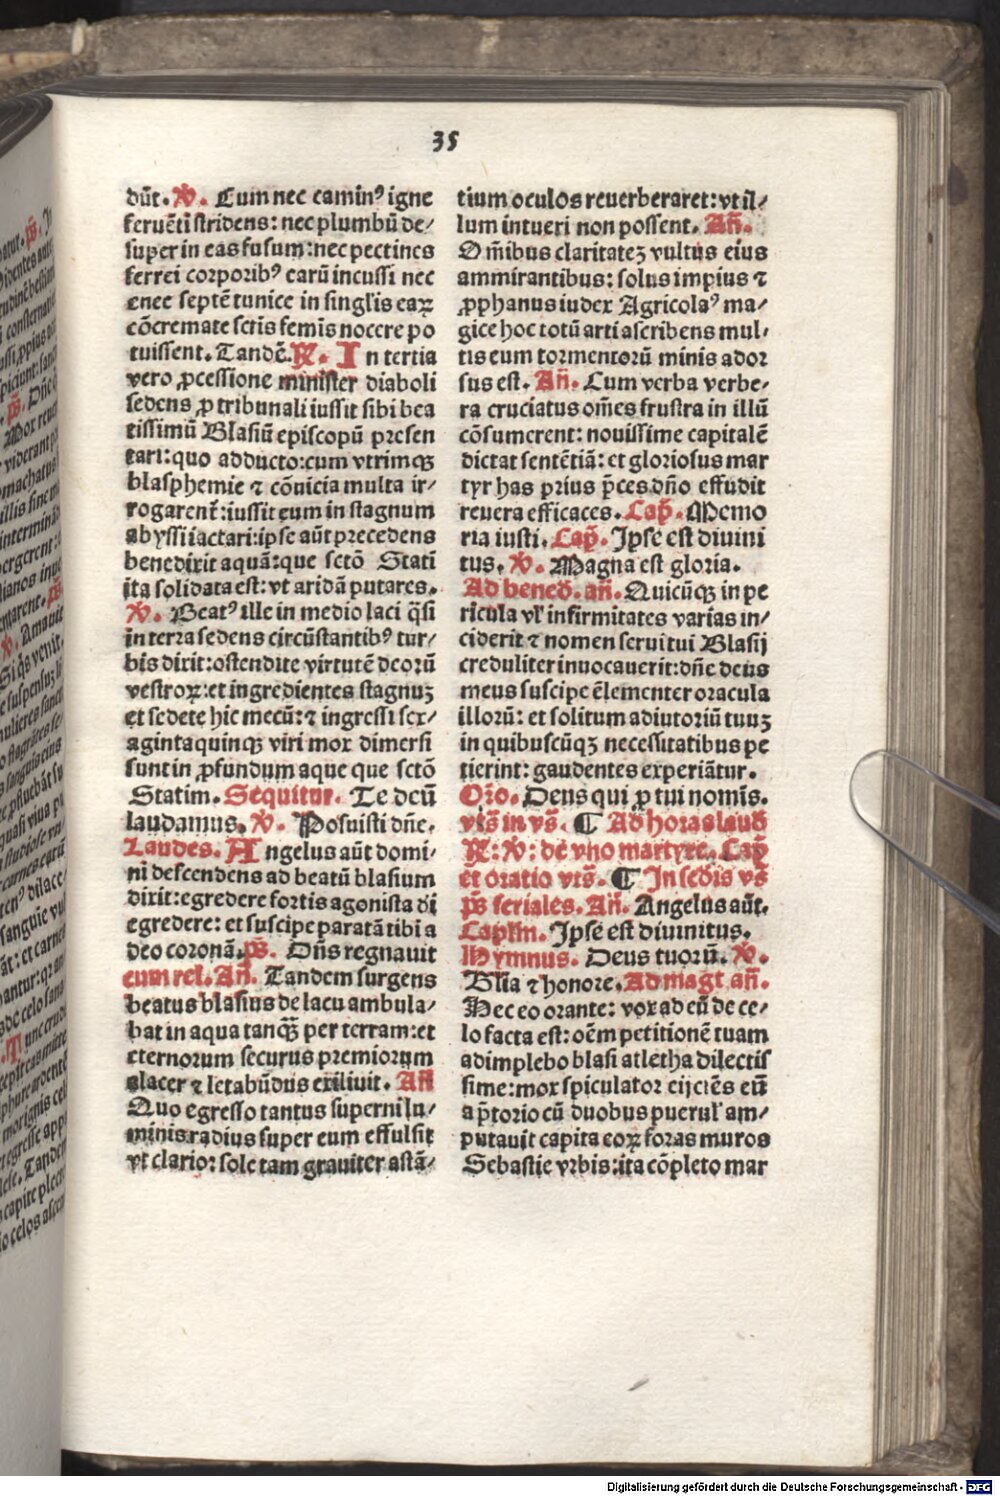 35
dūt. ℣. Cum nec caminꝰ igne
feruēti stridens: nec plumbū de⸗
super in eas fusum: nec pectines
ferrei corporibꝰ earū incussi nec
enee septē tunice in singl'is eaꝝ
cōcremate sctis femīs nocere po
tuissent. Tandē. ℟. In tertia
vero ꝓcessione minister diaboli
sedens ꝓ tribunali iussit sibi bea
tissimū Blasiū episcopū presen
tari: quo adducto: cum vtrimqꝫ
blasphemie ⁊ cōuicia multa ir⸗
rogarent᷑: iussit eum in stagnum
abyssi iactari: ipse aūt precedens
benedixit aquā: que sctō Stati
ita solidata est: vt aridā putares.
℣. Beatꝰ ille in medio laci q̄si
in terra sedens circūstantibꝰ tur⸗
bis dixit: ostendite virtutē deorū
vestroꝝ: et ingredientes stagnuꝫ
et sedete hic mecū: ⁊ ingressi sex⸗
aginta quinqꝫ viri mox dimersi
sunt in ꝓfundum aque que sctō
Statim. Sequitur. Te deū
laudamus. ℣. Posuisti dn̄e.
Laudes. Angelus aūt domi⸗
ni descendens ad beatū blasium
dixit: egredere fortis agonista di
egredere: et suscipe paratā tibi a
deo coronā. p̄s. Dn̄s regnauit
cum rel. An̄. Tandem surgens
beatus blasius de lacu ambula⸗
bat in aqua tanqꝫ̄ per terram: et
eternorum securus premiorum
alacer ⁊ letabūdus exiliuit. An̄
Quo egresso tantus superni lu⸗
minis radius super eum effulsit
vt clarior sole tam grauiter astā⸗
tium oculos reuerberaret: vt il⸗
lum intueri non possent. An̄.
Om̄ibus claritateꝫ vultus eius
ammirantibus: solus impius ⁊
ꝓphanus iudex Agricolaꝰ ma⸗
gice hoc totū arti ascribens mul⸗
tis eum tormentorū minis ador
sus est. An̄. Cum verba verbe⸗
ra cruciatus om̄es frustra in illū
cōsumerent: nouissime capitalē
dictat sentētiā: et gloriosus mar
tyr has prius p̄ces dn̄o effudit
reuera efficaces. Cap̄. Memo
ria iusti. Cap̄. Ipse est diuini
tus. ℣. Magna est gloria.
Ad bened̄. an̄. Quicūqꝫ in pe
ricula vl' infirmitates varias in⸗
ciderit ⁊ nomen serui tui Blasij
creduliter inuocauerit: dn̄e deus
meus suscipe clementer oracula
illorū: et solitum adiutoriū tuuꝫ
in quibuscūqꝫ necessitatibus pe
tierint: gaudentes experiātur.
Or̄o. Deus qui ꝓ tui nomīs.
vt̄s in vs̄. ¶ Ad horas laud̄
℟: ℣: de vno martyre. Cap̄
et oratio vts̄. ¶ In sedis vs̄
p̄s feriales. An̄. Angelus aūt.
Caplm̄. Ipse est diuinitus.
Hymnus. Deus tuorū. ℣.
Gl'ia ⁊ honore. Ad magt̄ an̄.
Hec eo orante: vox ad eū de ce⸗
lo facta est: oēm petitionē tuam
adimplebo blasi atletha dilectis
sime: mox spiculator eijciēs eū
a p̄torio cū duobus puerul' am⸗
putauit capita eoꝝ foras muros
Sebastie vrbis: ita cōpleto mar
Digitalisierung gefördert durch die Deutsche Forschungsgemeinschaft - DFG